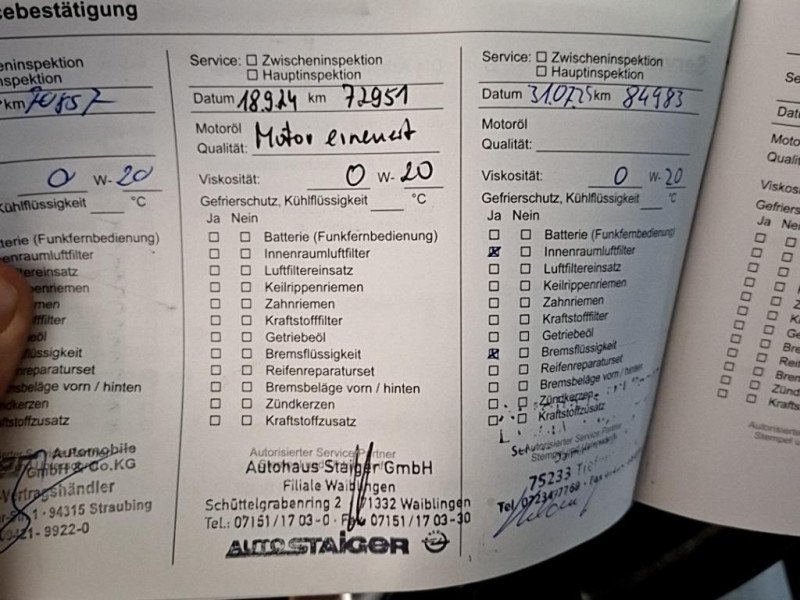 sebestätigung
eninspektion
nspektion
km 70857
0 W- 20
Kühlflüssigkeit °C
tterie (Funkfernbedienung)
enraumluftfilter
filtereinsatz
ppenriemen
men
fffilter
l
flüssigkeit
nreparaturset
msbeläge vorn / hinten
ndkerzen
aftstoffzusatz
Automobile
GmbH & Co.KG
Vertragshändler
1 · 94315 Straubing
9922-0
Service: Zwischeninspektion
Hauptinspektion
Datum 18.9.24 km 72951
Motoröl
Qualität: Motor erneuert
Viskosität: 0 W- 20
Gefrierschutz, Kühlflüssigkeit °C
Ja Nein
Batterie (Funkfernbedienung)
Innenraumluftfilter
Luftfiltereinsatz
Keilrippenriemen
Zahnriemen
Kraftstofffilter
Getriebeöl
Bremsflüssigkeit
Reifenreparaturset
Bremsbeläge vorn / hinten
Zündkerzen
Kraftstoffzusatz
Autorisierter Service Partner
Autohaus Staiger GmbH
Filiale Waiblingen
Schüttelgrabenring 2 71332 Waiblingen
Tel.: 07151/17 03-0 · Fax 07151/17 03-30
AUTOSTAIGER
Service: Zwischeninspektion
Hauptinspektion
Datum 31.07.25 km 84983
Motoröl
Qualität:
Viskosität: 0 W- 20
Gefrierschutz, Kühlflüssigkeit °C
Ja Nein
Batterie (Funkfernbedienung)
Innenraumluftfilter
Luftfiltereinsatz
Keilrippenriemen
Zahnriemen
Kraftstofffilter
Getriebeöl
Bremsflüssigkeit
Reifenreparaturset
Bremsbeläge vorn / hinten
Zündkerzen
Kraftstoffzusatz
Autorisierter Service Partner
75233
Tel.
Datu
Moto
Qualit
Viskos
Gefrie
Ja Nei